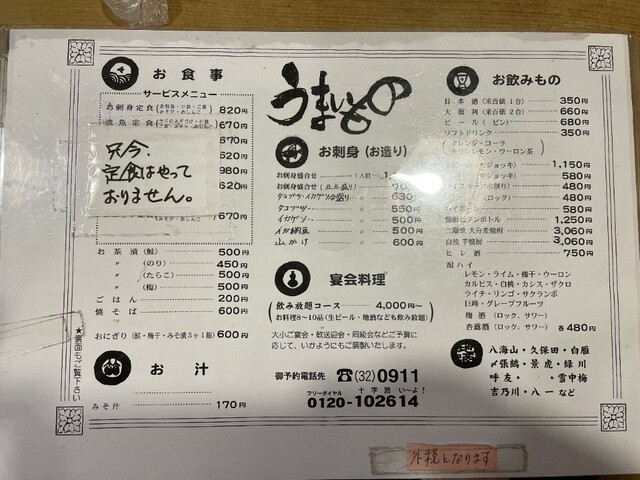 お食事
サービスメニュー
お刺身定食 820円
焼魚定食 670円
670円
520円
980円
620円
670円
只今、
定食はやって
おりません。
お茶漬(鮭) 500円
〃 (のり) 450円
〃 (たらこ) 500円
〃 (梅) 500円
ごはん 200円
焼そば 600円
おにぎり(鮭・梅干・みそ漬3ヶ1組) 600円
★裏面もご覧下さい
お汁
みそ汁 170円
うまいもの
お刺身(お造り)
お刺身盛合せ 1人前
お刺身盛合せ
タコブツ・イカゲソ合盛り 630
タコブツ 550円
イカゲソ 500円
イカ納豆 500円
山かけ 600円
宴会料理
飲み放題コース 4,000円〜
お料理8〜10品(生ビール・地酒なども飲み放題)
大小ご宴会・歓送迎会・同級会などご予算に
応じて、いかようにもご調製いたします。
御予約電話先 ☎(32)0911
フリーダイヤル 十字路 い〜よ!
0120-102614
お飲みもの
日本酒(米百俵1合) 350円
大徳利(米百俵2合) 660円
ビール(ビン) 680円
ソフトドリンク 350円
オレンジ・コーラ
ウーロン茶
ジョッキ) 1,150円
ジョッキ) 580円
水割り) 480円
(ロック) 480円
580円
ボトル 1,250円
二階堂 大分麦焼酎 3,060円
白波 芋焼酎 3,060円
ヒレ酒 750円
酎ハイ
レモン・ライム・梅干・ウーロン
カルピス・白桃・カシス・ザクロ
ライチ・リンゴ・サクランボ
巨峰・グレープフルーツ
梅酒(ロック、サワー)
杏露酒(ロック、サワー) 各480円
地酒
八海山・久保田・白雁
〆張鶴・景虎・緑川
呼友・ ・雪中梅
吉乃川・八一など
外税となります